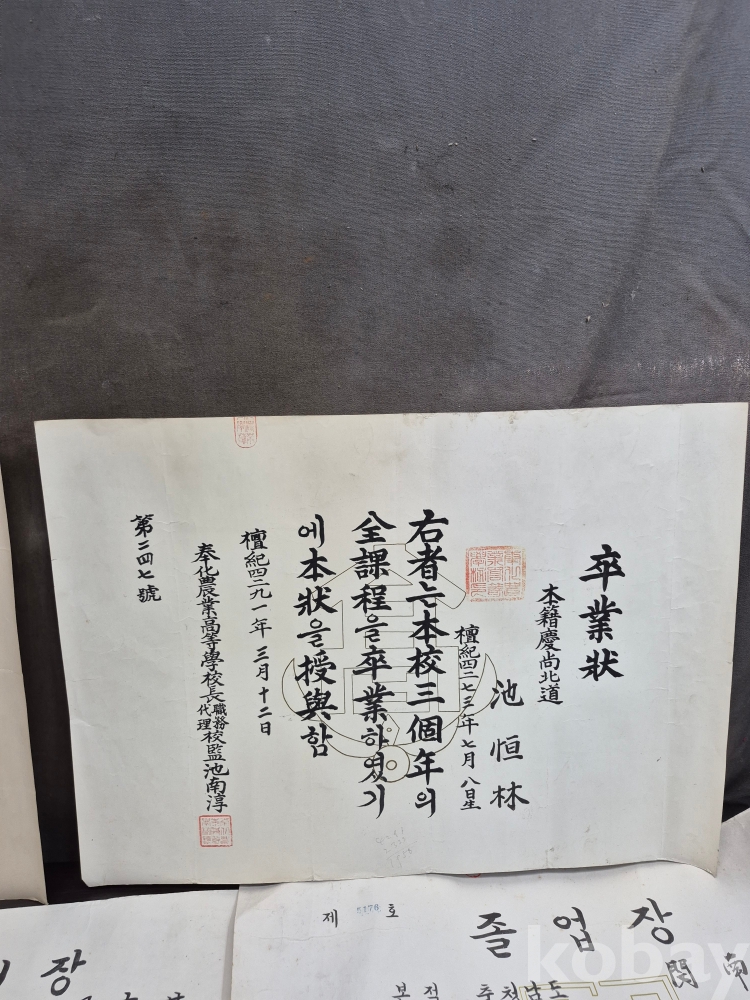 卒業狀
本籍慶尙北道
池恒林
檀紀四二七三年七月八日生
右者는本校三個年의
全課程을卒業하였기
에本狀을授與함
檀紀四二九一年三月十二日
奉化農業高等學校長職務代理校監池南淳
第二四七號
제 5176 호
졸업장
본적
장
kobay